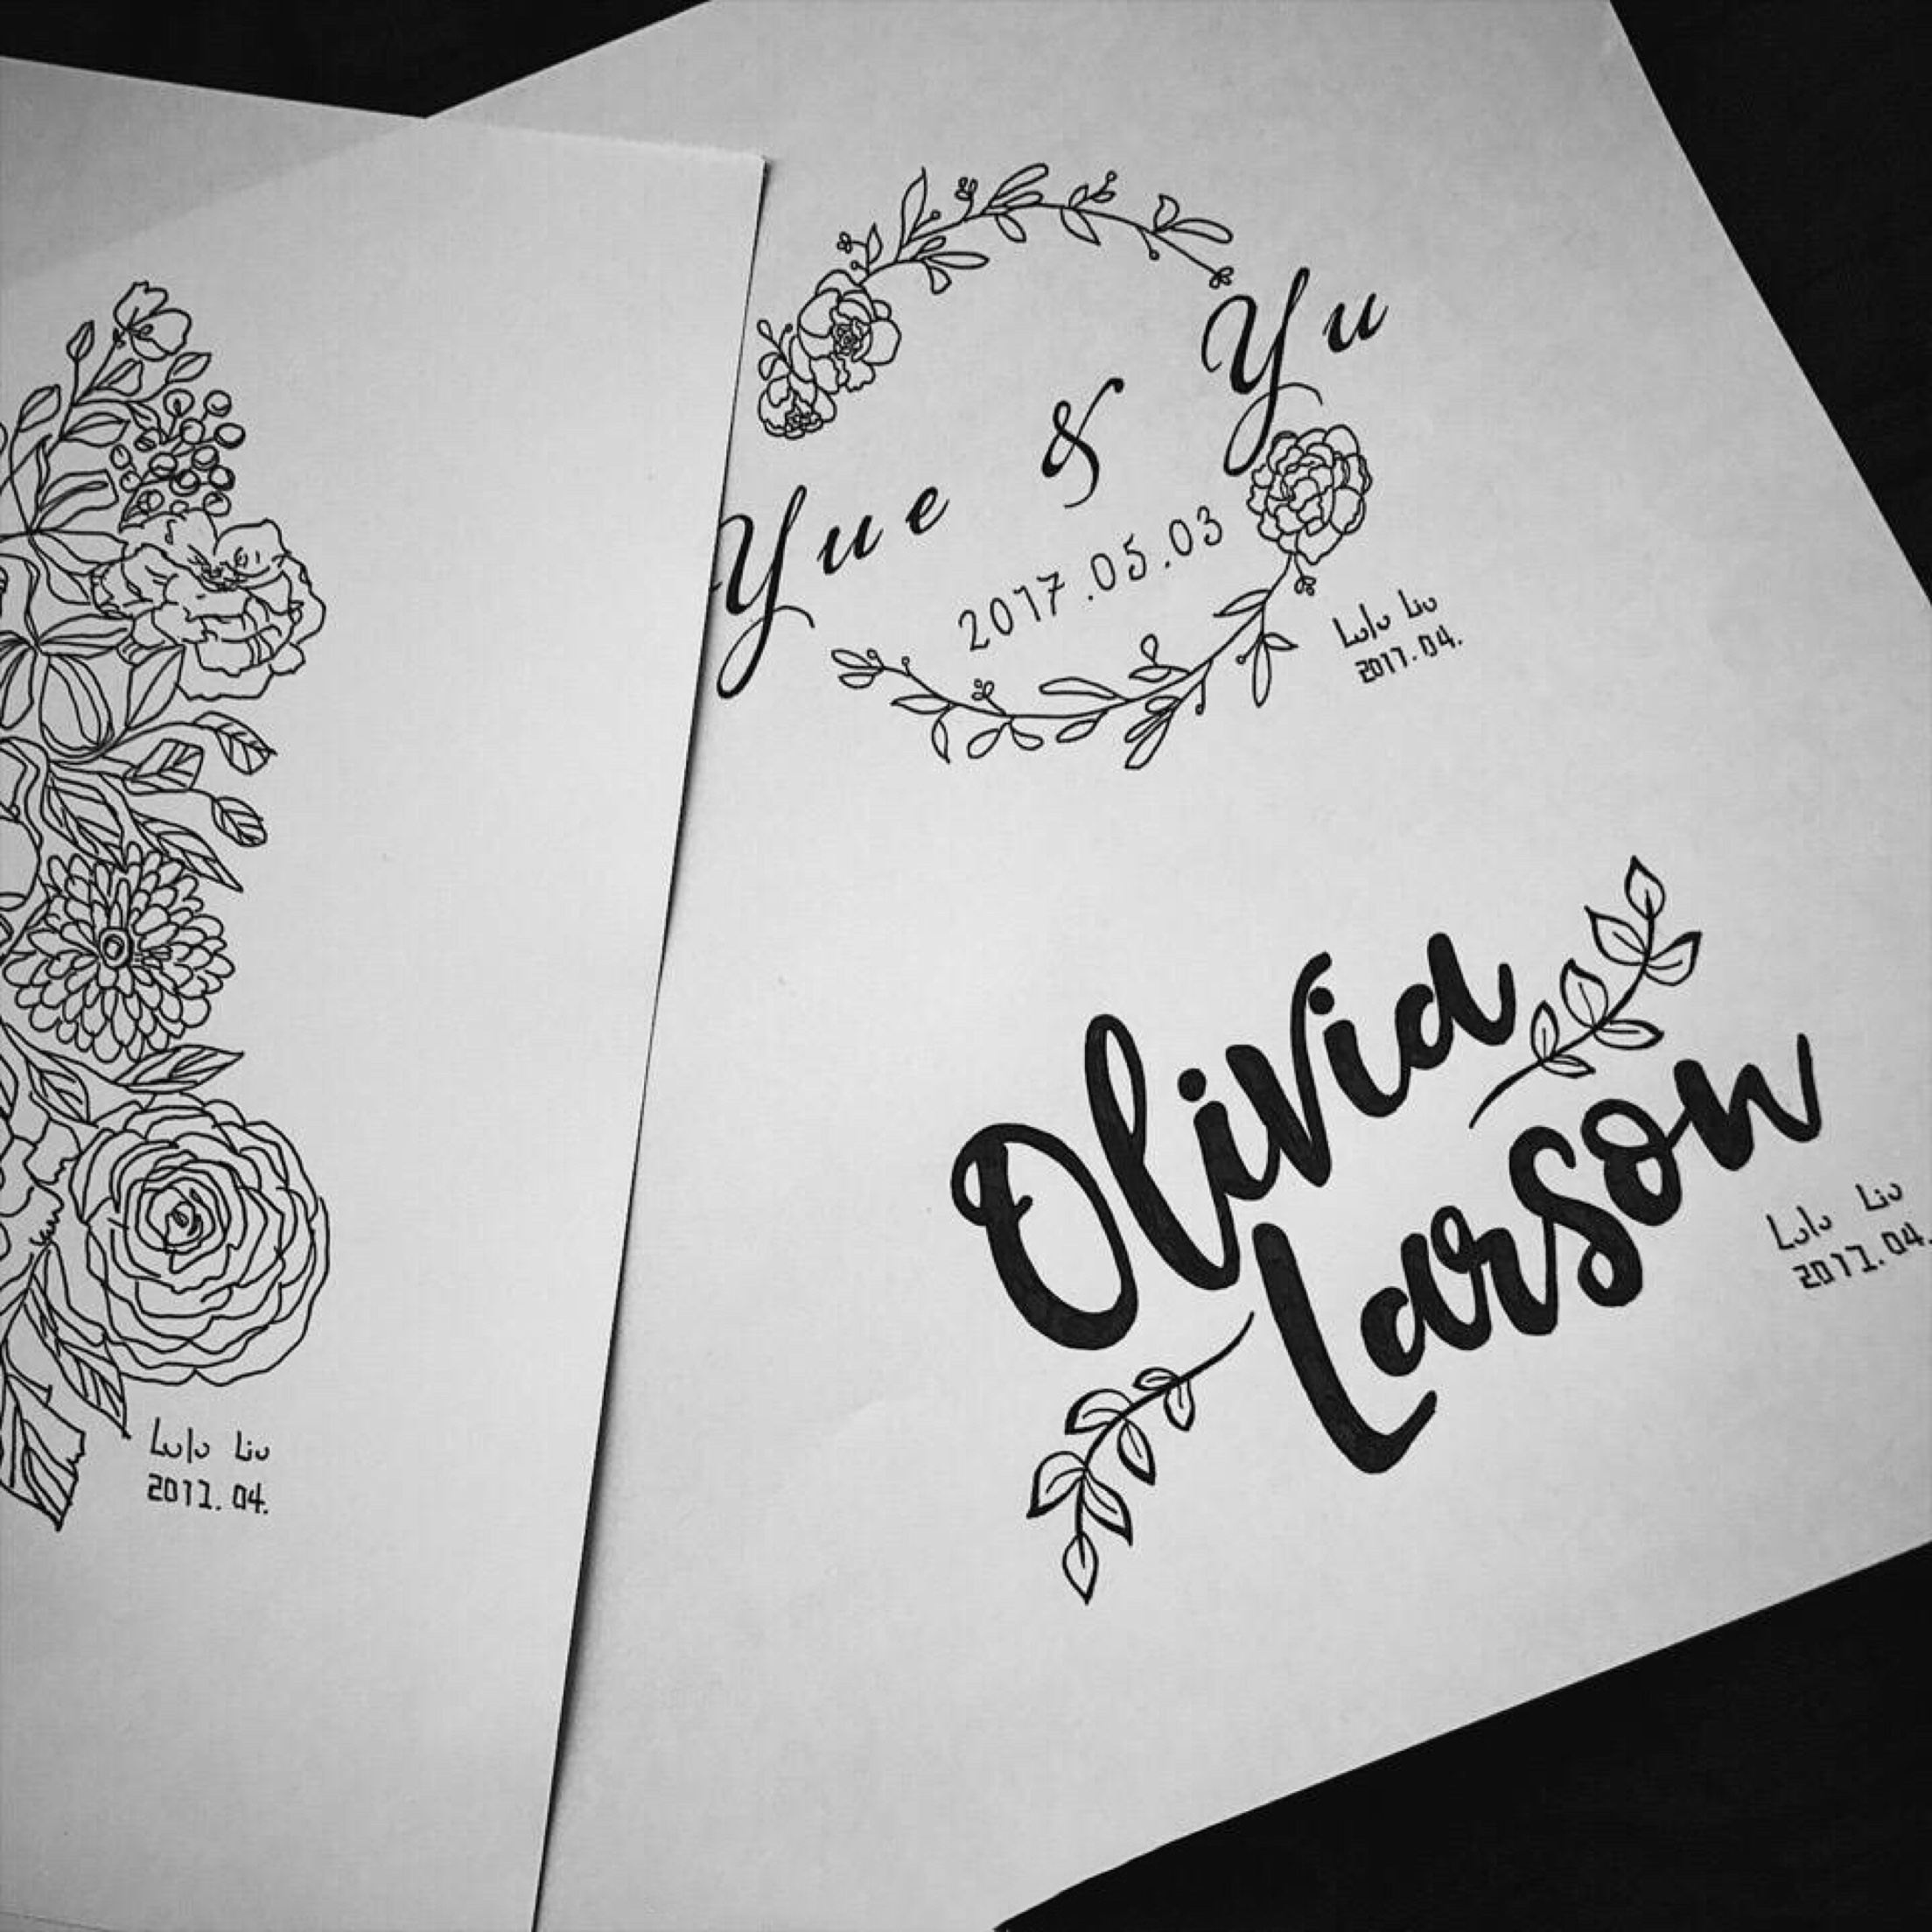 Yue & Yu
2017.05.03
Lulu Liu
2017.04.
Olivia
Larson
Lulu Liu
2017.04.
Lulu Liu
2017.04.